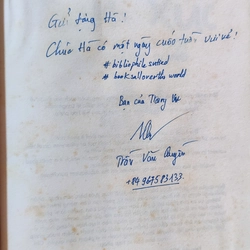 Gửi tặng Hà!
Chúc Hà có một ngày cuối tuần vui vẻ!
#bibliophilsunited
#booksalloverthe world
Bạn của Trang
Trần Văn
+84 967583133